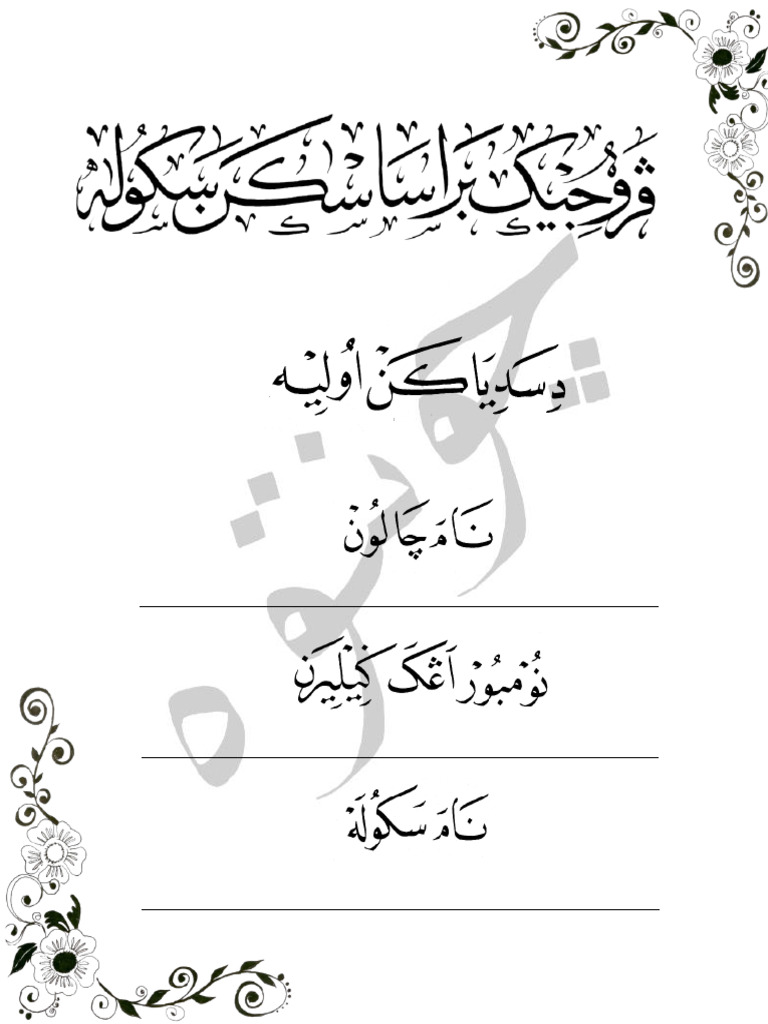 ڤروجيک براساسکن سکوله
دسدياکن اوليه
نام چالون
نومبور اڠک ݢيليرن
نام سکوله
چونتوه